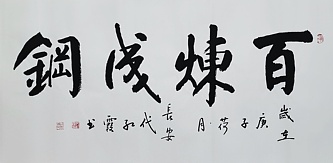 百煉成鋼
歲在
庚子荷月
長安
代紅霞書